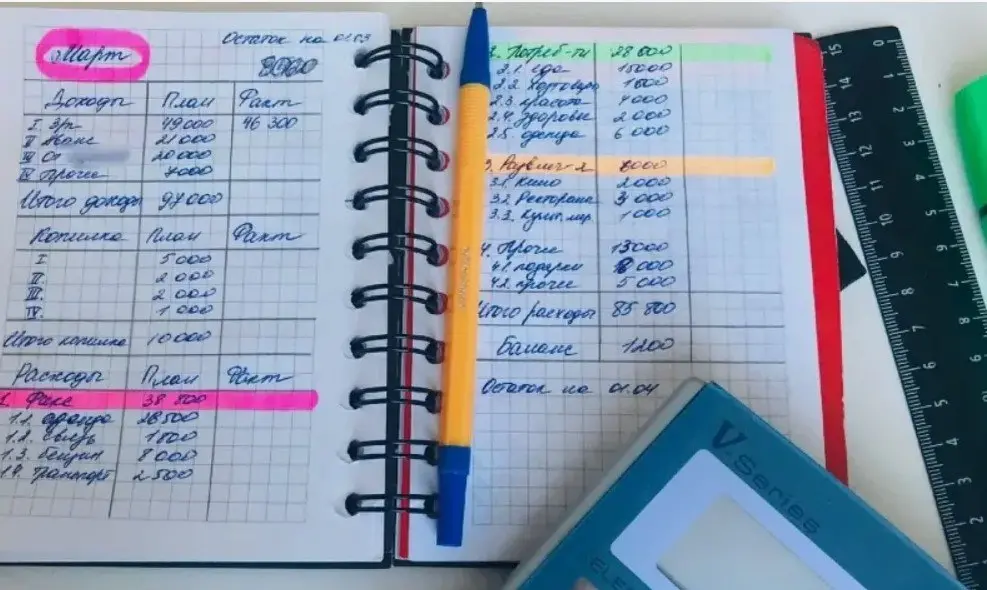 Март
Остаток на 01.03
Доходы План Факт
I З/п 49000 46 300
II 21000
III 20000
IV Прочие 7000
Итого доходы 97000
Копилка План Факт
I 5000
II. 2 000
III. 2 000
IV. 1 000
Итого копилка 10000
Расходы План Факт
1. Фикс 38 800
1.1. аренда 26500
1.2. связь 1800
1.3. 8 000
1.4. транспорт 2500
2. Потреб-ти 28 000
2.1. еда 15000
2.2. 1000
2.3. красота 4000
2.4. здоровье 2 000
2.5. одежда 6 000
3. Развлеч-я 6000
3.1. Кино 2000
3.2. Рестораны 3 000
3.3. Культ. мер. 1 000
4. Прочие 13000
4.1. подарки 8 000
4.2. прочие 5 000
Итого расходы 85 800
Баланс 1200
Остаток на 01.04
V. Series